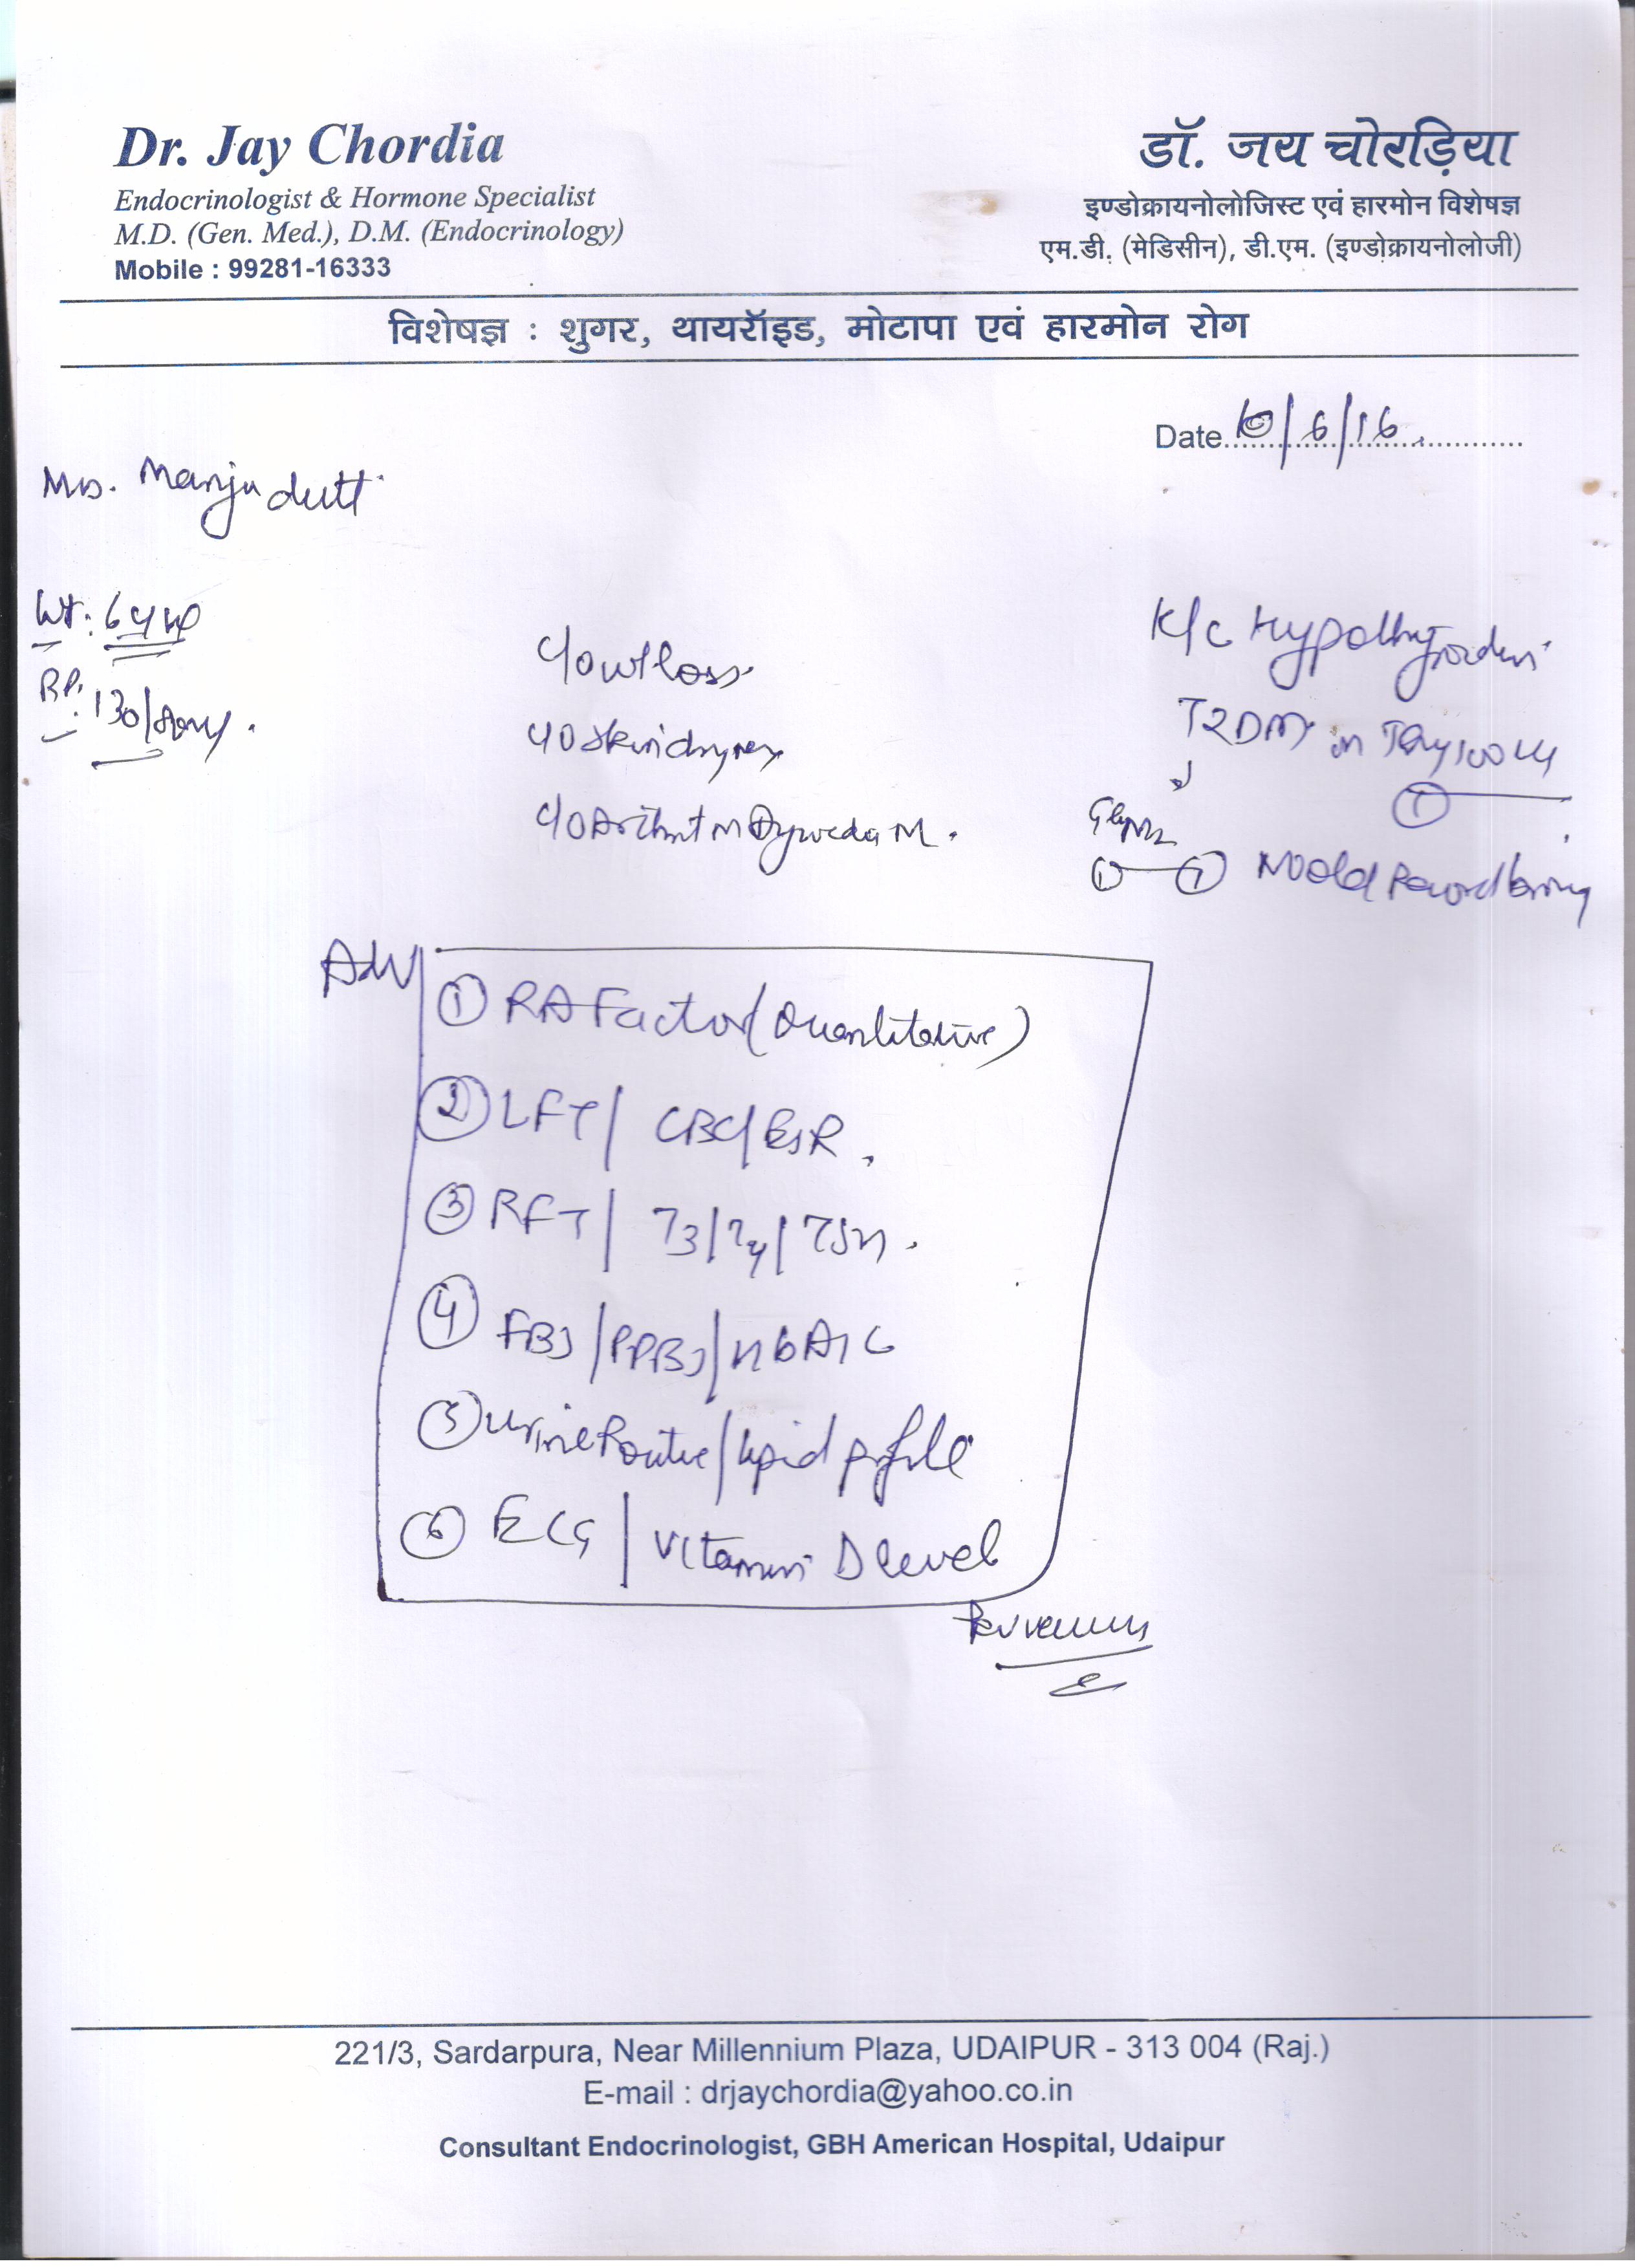 Dr. Jay Chordia
Endocrinologist & Hormone Specialist
M.D. (Gen. Med.), D.M. (Endocrinology)
Mobile : 99281-16333
डॉ. जय चोरड़िया
इण्डोक्रायनोलोजिस्ट एवं हारमोन विशेषज्ञ
एम.डी. (मेडिसीन), डी.एम. (इण्डोक्रायनोलोजी)
विशेषज्ञ : शुगर, थायरॉइड, मोटापा एवं हारमोन रोग
Date /6/16
Manju dutt
Wt:
BP: 130/
C/o wt loss
C/o Skin dryness
C/o
K/c Hypothyroidism
T2DM on
No old Record bring
Adv
① RA Factor (Quantitative)
② LFT / CBC/ESR.
③ RFT / T3/T4/TSH.
④ FBS/PPBS/HbA1C
⑤ Urine Routine/lipid profile
⑥ ECG / Vitamin D level
221/3, Sardarpura, Near Millennium Plaza, UDAIPUR - 313 004 (Raj.)
E-mail : drjaychordia@yahoo.co.in
Consultant Endocrinologist, GBH American Hospital, Udaipur